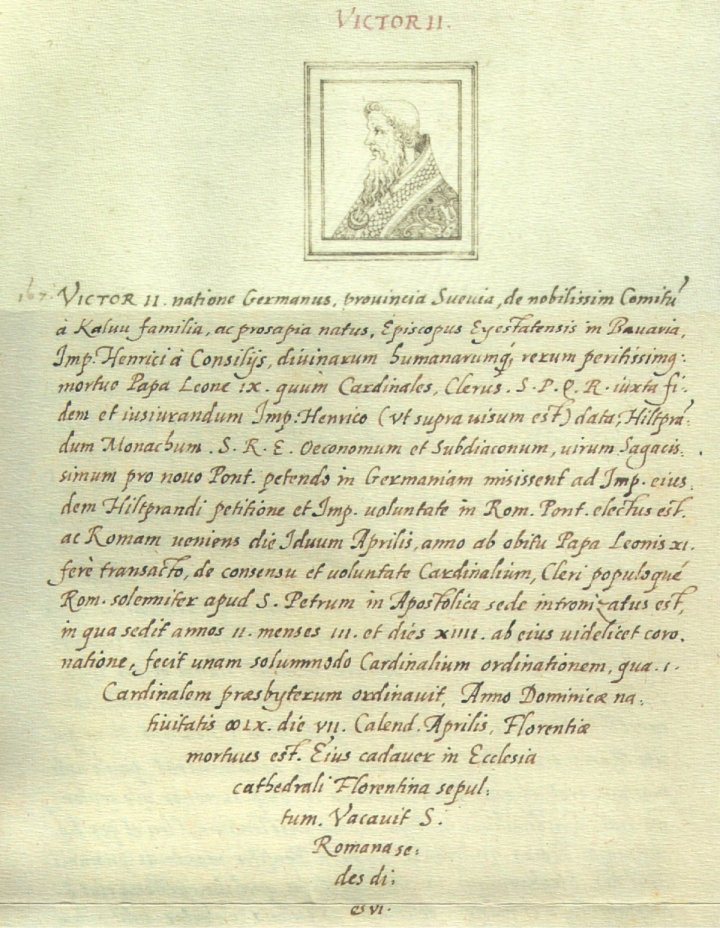 VICTOR II.
167.
VICTOR II. natione Germanus, prouincia Sueuia, de nobilissim Comitũ
à Kaluu familia, ac prosapia natus, Episcopus Eyestatensis in Bauaria,
Imp. Henrici à Consilijs, diuinarum humanarumq́; rerum peritissimq:
mortuo Papa Leone IX. quum Cardinales, Clerus. S. P. Q. R. iuxta fi-
dem et iusiurandum Imp. Henrico (vt supra uisum est) data, Hiltprã-
dum Monachum. S. R. E. Oeconomum et Subdiaconum, uirum Sagacis-
simum pro nouo Pont. petendo in Germaniam misissent ad Imp. eius-
dem Hiltprandi petitione et Imp. voluntate in Rom. Pont. electus est.
ac Romam veniens die Iduum Aprilis, anno ab obitu Papa Leonis XI.
ferè transacto, de consensu et voluntate Cardinalium, Cleri populoqué
Rom. solemniter apud S. Petrum in Apostolica sede intronizatus est,
in qua sedit annos II. menses III. et dies XIIII. ab eius uidelicet coro-
natione, fecit unam solummodo Cardinalium ordinationem, qua. I.
Cardinalem præsbyterum ordinauit, Anno Dominicæ na-
tiuitatis ꝏLX. die VII. Calend. Aprilis, Florentiæ
mortuus est. Eius cadauer in Ecclesia
cathedrali Florentina sepul-
tum. Vacauit S.
Romana se-
des di-
es VI.